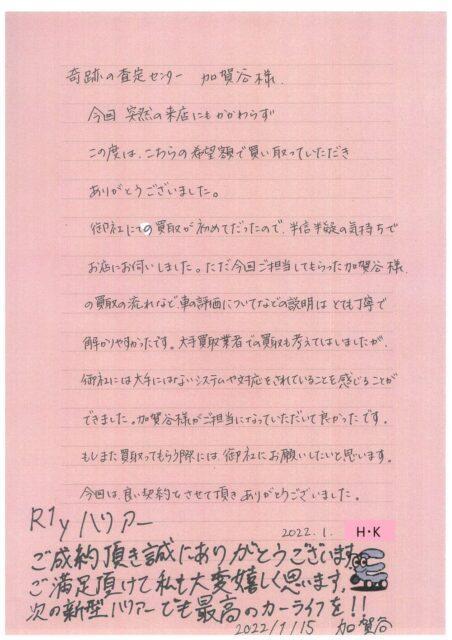 奇跡の査定センター 加賀谷様.
今回 突然の来店にもかかわらず
この度は、こちらの希望額で買い取っていただき
ありがとうございました。
御社にての買取が初めてだったので、半信半疑の気持ちで
お店にお伺いしました。ただ今回ご担当してもらった加賀谷様.
の買取の流れなど、車の評価についてなどの説明はとても丁寧で
解かりやすかったです。大手買取業者での買取も考えてはしましたが、
御社には大手にはないシステムや対応をされていることを感じることが
できました。加賀谷様がご担当になっていただいて良かったです。
もしまた買取ってもらう際には、御社にお願いしたいと思います。
今回は、良い契約をさせて頂きありがとうございました。
R1y ハリアー
2022.1. H・K
ご成約頂き誠にありがとうございます。
ご満足頂けて私も大変嬉しく思います。
次の新型ハリアーでも最高のカーライフを!!
2022/1/15 加賀谷